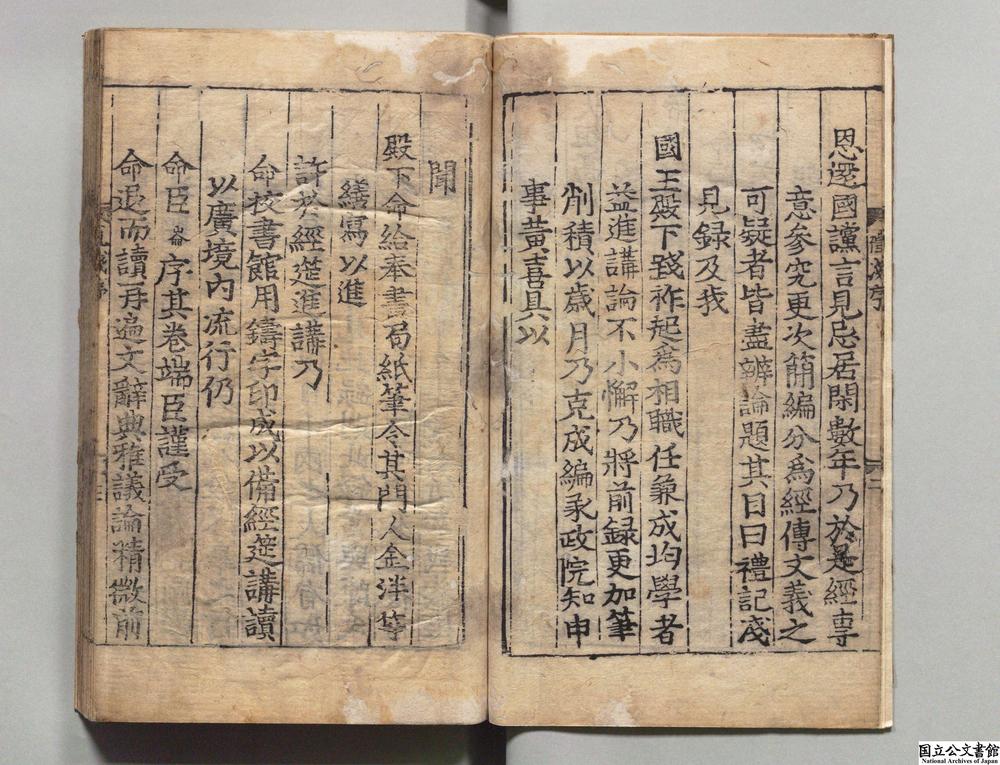 恩還國讜言見忌居閑數年乃於是經專
意參究更次簡編分爲經傳文義之
可疑者皆盡辨論題其目曰禮記淺
見録及我
國王殿下踐祚起爲相職任兼成均學者
益進講論不小懈乃將前録更加筆
削積以歲月乃克成編承政院知申
事黃喜具以
聞
殿下命給奉書局紙筆令其門人金泮等
繕寫以進
許於經筵進講乃
命校書館用鑄字印成以備經筵講讀
以廣境內流行仍
命臣崙序其卷端臣謹受
命退而讀再遍文辭典雅議論精微前
国立公文書館
National Archives of Japan